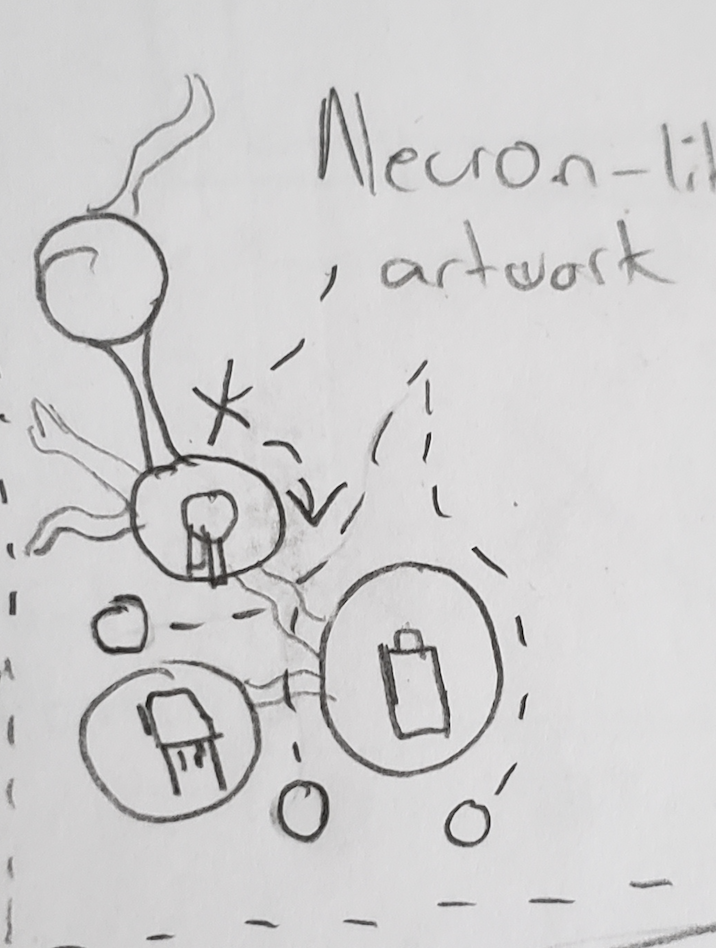 Necron-li
, artwork